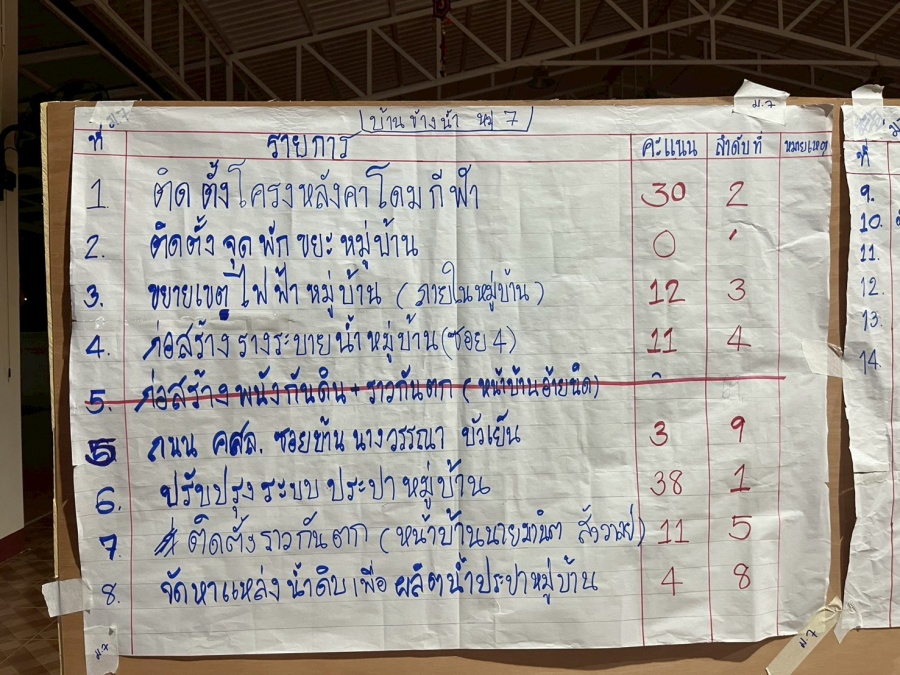 ม.7
บ้านข้างน้ำ หมู่ 7
ที่ รายการ คะแนน ลำดับที่ หมายเหตุ
1. ติดตั้งโครงหลังคาโดมกีฬา 30 2
2. ติดตั้งจุดพักขยะหมู่บ้าน 0
3. ขยายเขตไฟฟ้าหมู่บ้าน (ภายในหมู่บ้าน) 12 3
4. ก่อสร้างรางระบายน้ำหมู่บ้าน(ซอย 4) 11 4
5. ก่อสร้างพนังกันดิน + ราวกันตก (หน้าบ้าน
5 ถนน คสล. ซอยบ้านนางวรรณา บัวเย็น 3 9
6. ปรับปรุงระบบประปาหมู่บ้าน 38 1
7 ติดตั้งราวกันตก (หน้าบ้านนายมานิต 11 5
8. จัดหาแหล่งน้ำดิบเพื่อผลิตน้ำประปาหมู่บ้าน 4 8
ม.7
ม.7
ที่
9.
10.
11.
12.
13.
14.